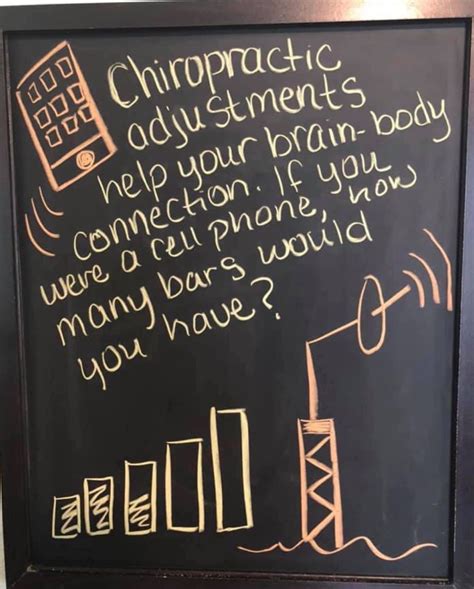 Chiropractic
adjustments
help your brain-body
connection. If you
were a cell phone, how
many bars would
you have?